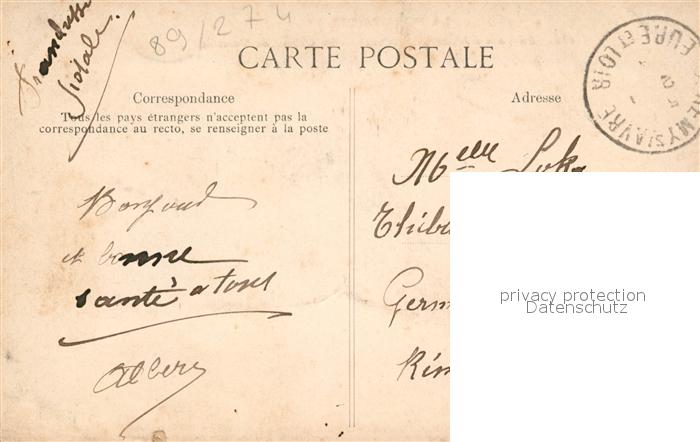 89/274
CARTE POSTALE
Correspondance
Tous les pays étrangers n'acceptent pas la
correspondance au recto, se renseigner à la poste
Adresse
EURE ET LOIR
REMY S/AVRE
et bonne
santé a tous
Albert
Melle
Germ
privacy protection
Datenschutz